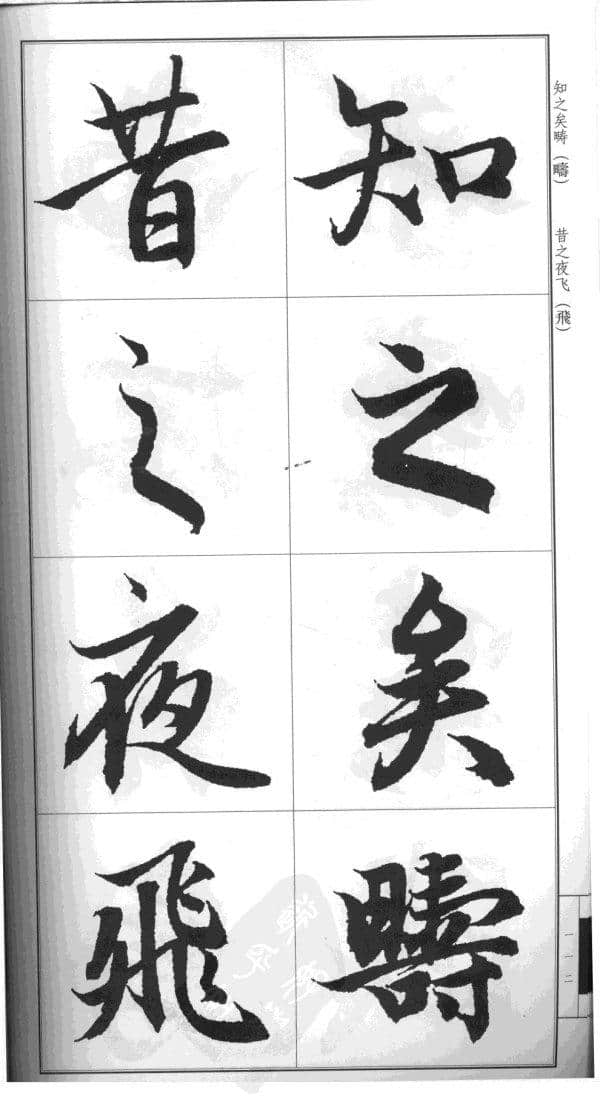 知之矣畴（疇）　昔之夜飞（飛）
知之矣疇
昔之夜飛
一一二